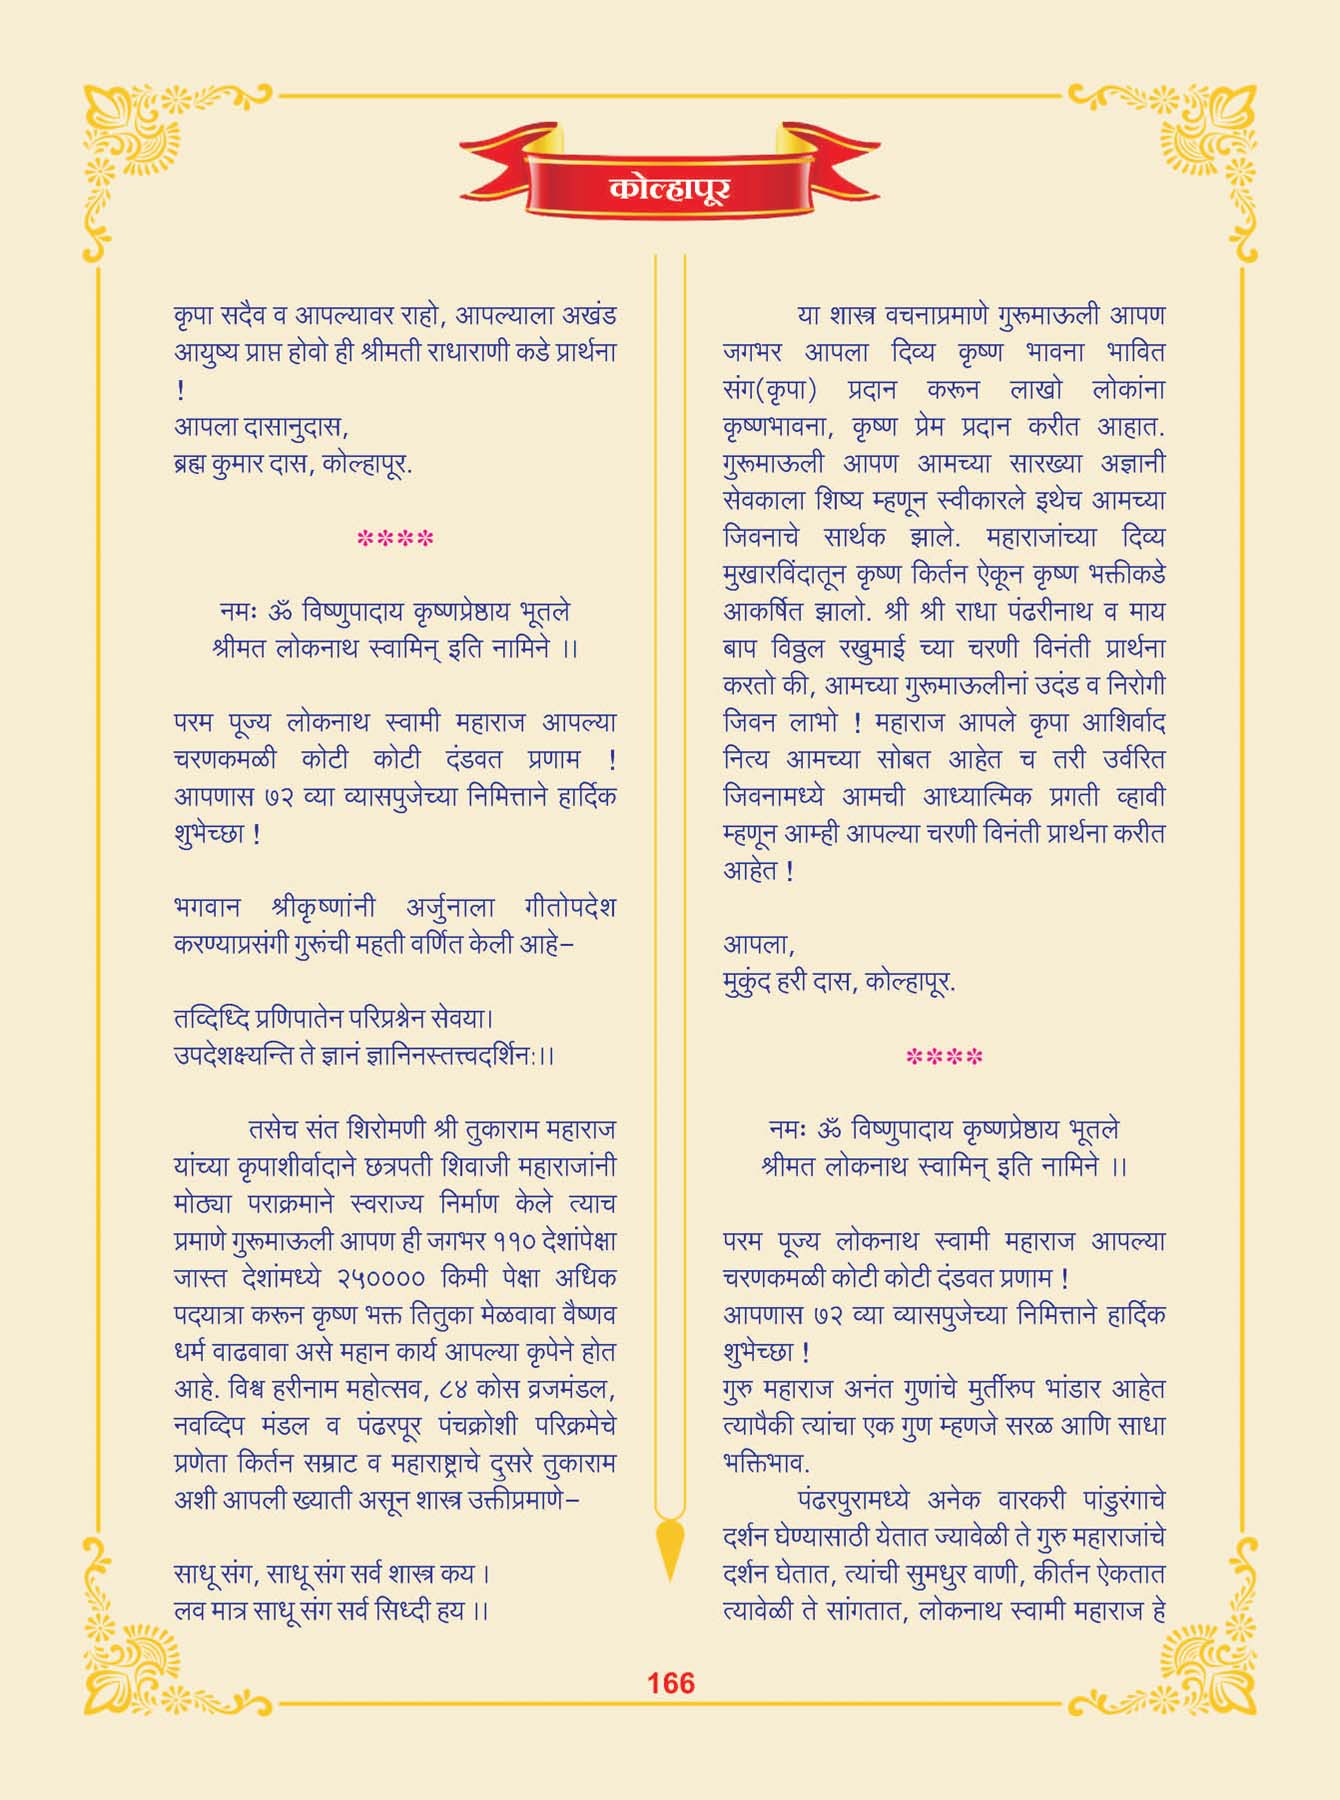 कोल्हापूर
कृपा सदैव व आपल्यावर राहो, आपल्याला अखंड
आयुष्य प्राप्त होवो ही श्रीमती राधाराणी कडे प्रार्थना
!
आपला दासानुदास,
ब्रह्म कुमार दास, कोल्हापूर.
****
नमः ॐ विष्णुपादाय कृष्णप्रेष्ठाय भूतले
श्रीमत लोकनाथ स्वामिन् इति नामिने ।।
परम पूज्य लोकनाथ स्वामी महाराज आपल्या
चरणकमळी कोटी कोटी दंडवत प्रणाम !
आपणास ७२ व्या व्यासपुजेच्या निमित्ताने हार्दिक
शुभेच्छा !
भगवान श्रीकृष्णांनी अर्जुनाला गीतोपदेश
करण्याप्रसंगी गुरूंची महती वर्णित केली आहे–
तव्दिध्दि प्रणिपातेन परिप्रश्नेन सेवया।
उपदेशक्ष्यन्ति ते ज्ञानं ज्ञानिनस्तत्त्वदर्शिन:।।
तसेच संत शिरोमणी श्री तुकाराम महाराज
यांच्या कृपाशीर्वादाने छत्रपती शिवाजी महाराजांनी
मोठ्या पराक्रमाने स्वराज्य निर्माण केले त्याच
प्रमाणे गुरूमाऊली आपण ही जगभर ११० देशांपेक्षा
जास्त देशांमध्ये २५०००० किमी पेक्षा अधिक
पदयात्रा करून कृष्ण भक्त तितुका मेळवावा वैष्णव
धर्म वाढवावा असे महान कार्य आपल्या कृपेने होत
आहे. विश्व हरीनाम महोत्सव, ८४ कोस व्रजमंडल,
नवव्दिप मंडल व पंढरपूर पंचक्रोशी परिक्रमेचे
प्रणेता किर्तन सम्राट व महाराष्ट्राचे दुसरे तुकाराम
अशी आपली ख्याती असून शास्त्र उक्तीप्रमाणे–
साधू संग, साधू संग सर्व शास्त्र कय ।
लव मात्र साधू संग सर्व सिध्दी हय ।।
या शास्त्र वचनाप्रमाणे गुरूमाऊली आपण
जगभर आपला दिव्य कृष्ण भावना भावित
संग(कृपा) प्रदान करून लाखो लोकांना
कृष्णभावना, कृष्ण प्रेम प्रदान करीत आहात.
गुरूमाऊली आपण आमच्या सारख्या अज्ञानी
सेवकाला शिष्य म्हणून स्वीकारले इथेच आमच्या
जिवनाचे सार्थक झाले. महाराजांच्या दिव्य
मुखारविंदातून कृष्ण किर्तन ऐकून कृष्ण भक्तीकडे
आकर्षित झालो. श्री श्री राधा पंढरीनाथ व माय
बाप विठ्ठल रखुमाई च्या चरणी विनंती प्रार्थना
करतो की, आमच्या गुरूमाऊलीनां उदंड व निरोगी
जिवन लाभो ! महाराज आपले कृपा आशिर्वाद
नित्य आमच्या सोबत आहेत च तरी उर्वरित
जिवनामध्ये आमची आध्यात्मिक प्रगती व्हावी
म्हणून आम्ही आपल्या चरणी विनंती प्रार्थना करीत
आहेत !
आपला,
मुकुंद हरी दास, कोल्हापूर.
****
नमः ॐ विष्णुपादाय कृष्णप्रेष्ठाय भूतले
श्रीमत लोकनाथ स्वामिन् इति नामिने ।।
परम पूज्य लोकनाथ स्वामी महाराज आपल्या
चरणकमळी कोटी कोटी दंडवत प्रणाम !
आपणास ७२ व्या व्यासपुजेच्या निमित्ताने हार्दिक
शुभेच्छा !
गुरु महाराज अनंत गुणांचे मुर्तीरुप भांडार आहेत
त्यापैकी त्यांचा एक गुण म्हणजे सरळ आणि साधा
भक्तिभाव.
पंढरपुरामध्ये अनेक वारकरी पांडुरंगाचे
दर्शन घेण्यासाठी येतात ज्यावेळी ते गुरु महाराजांचे
दर्शन घेतात, त्यांची सुमधुर वाणी, कीर्तन ऐकतात
त्यावेळी ते सांगतात, लोकनाथ स्वामी महाराज हे
166